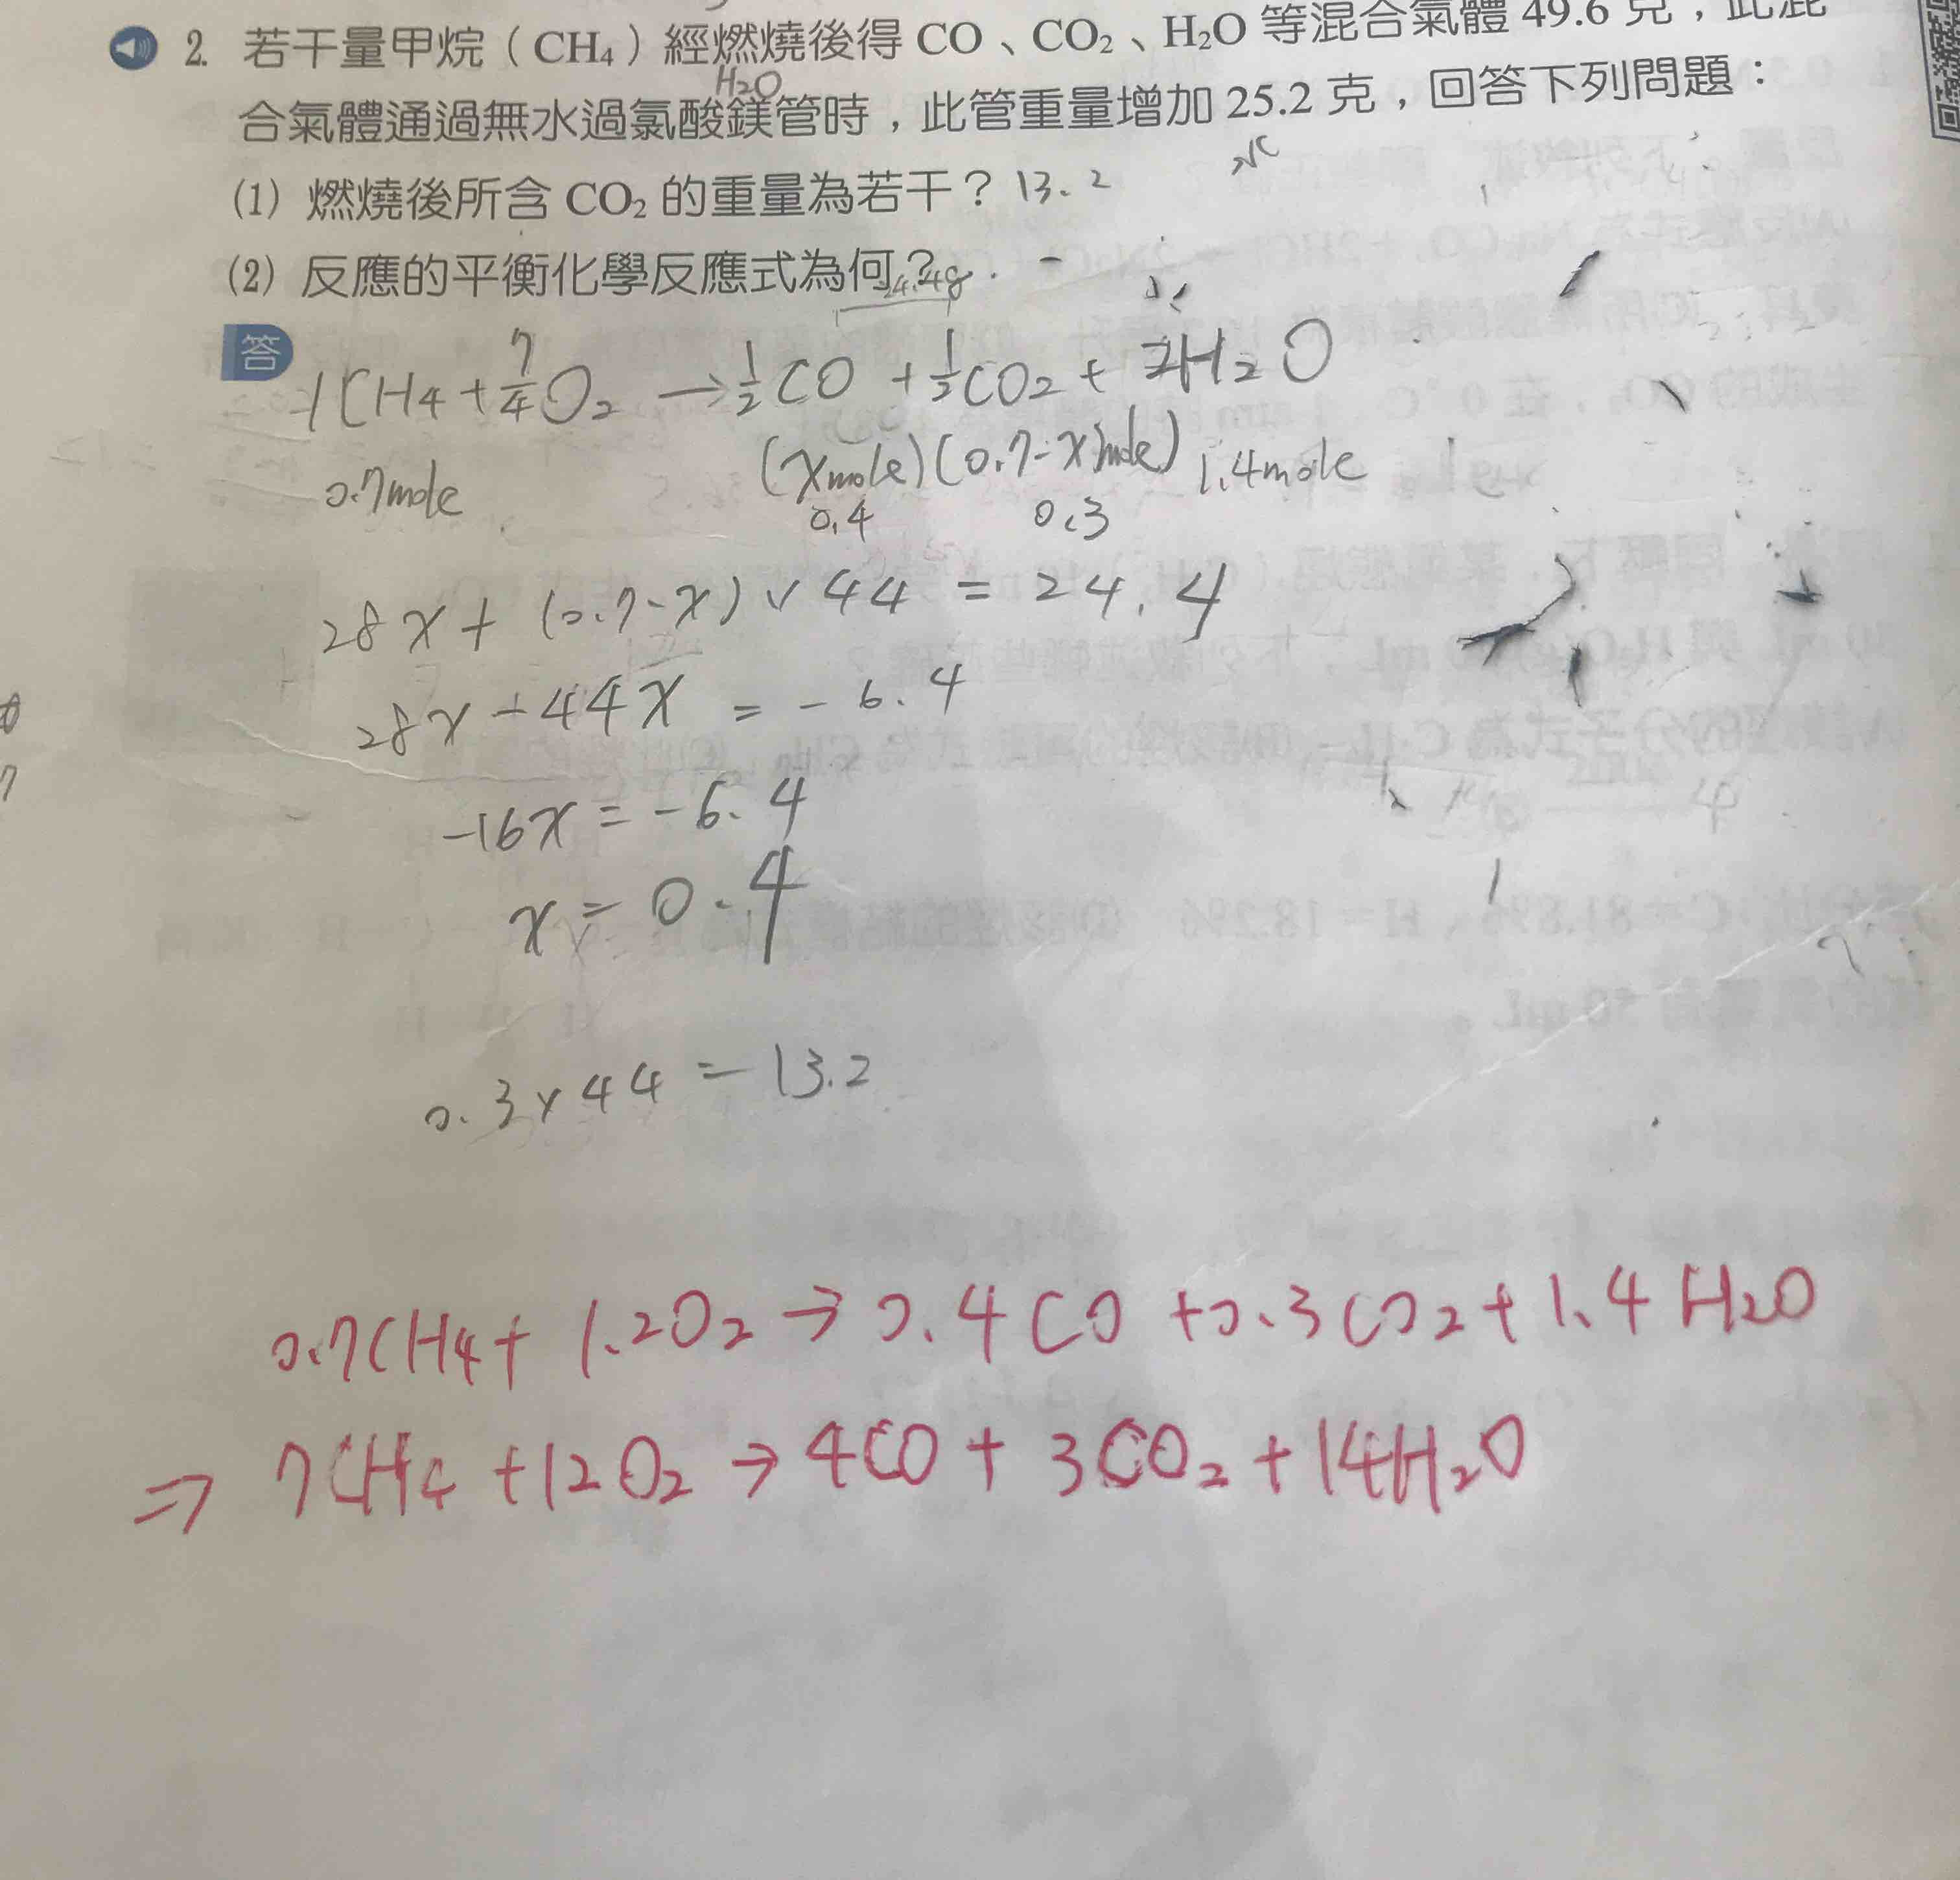 2. 若干量甲烷（CH₄）經燃燒後得 CO、CO₂、H₂O 等混合氣體 49.6 克，此混
H₂O
合氣體通過無水過氯酸鎂管時，此管重量增加 25.2 克，回答下列問題：
(1) 燃燒後所含 CO₂ 的重量為若干？ 13.2
(2) 反應的平衡化學反應式為何？
答
1CH₄ + 7/4 O₂ → 1/2 CO + 1/2 CO₂ + 2H₂O
0.7mole (x mole) (0.7-x mole) 1.4mole
0.4 0.3
28x + (0.7-x) × 44 = 24.4
28x - 44x = -6.4
-16x = -6.4
x = 0.4
0.3 × 44 = 13.2
0.7CH₄ + 1.2O₂ → 0.4CO + 0.3CO₂ + 1.4H₂O
⇒ 7CH₄ + 12O₂ → 4CO + 3CO₂ + 14H₂O